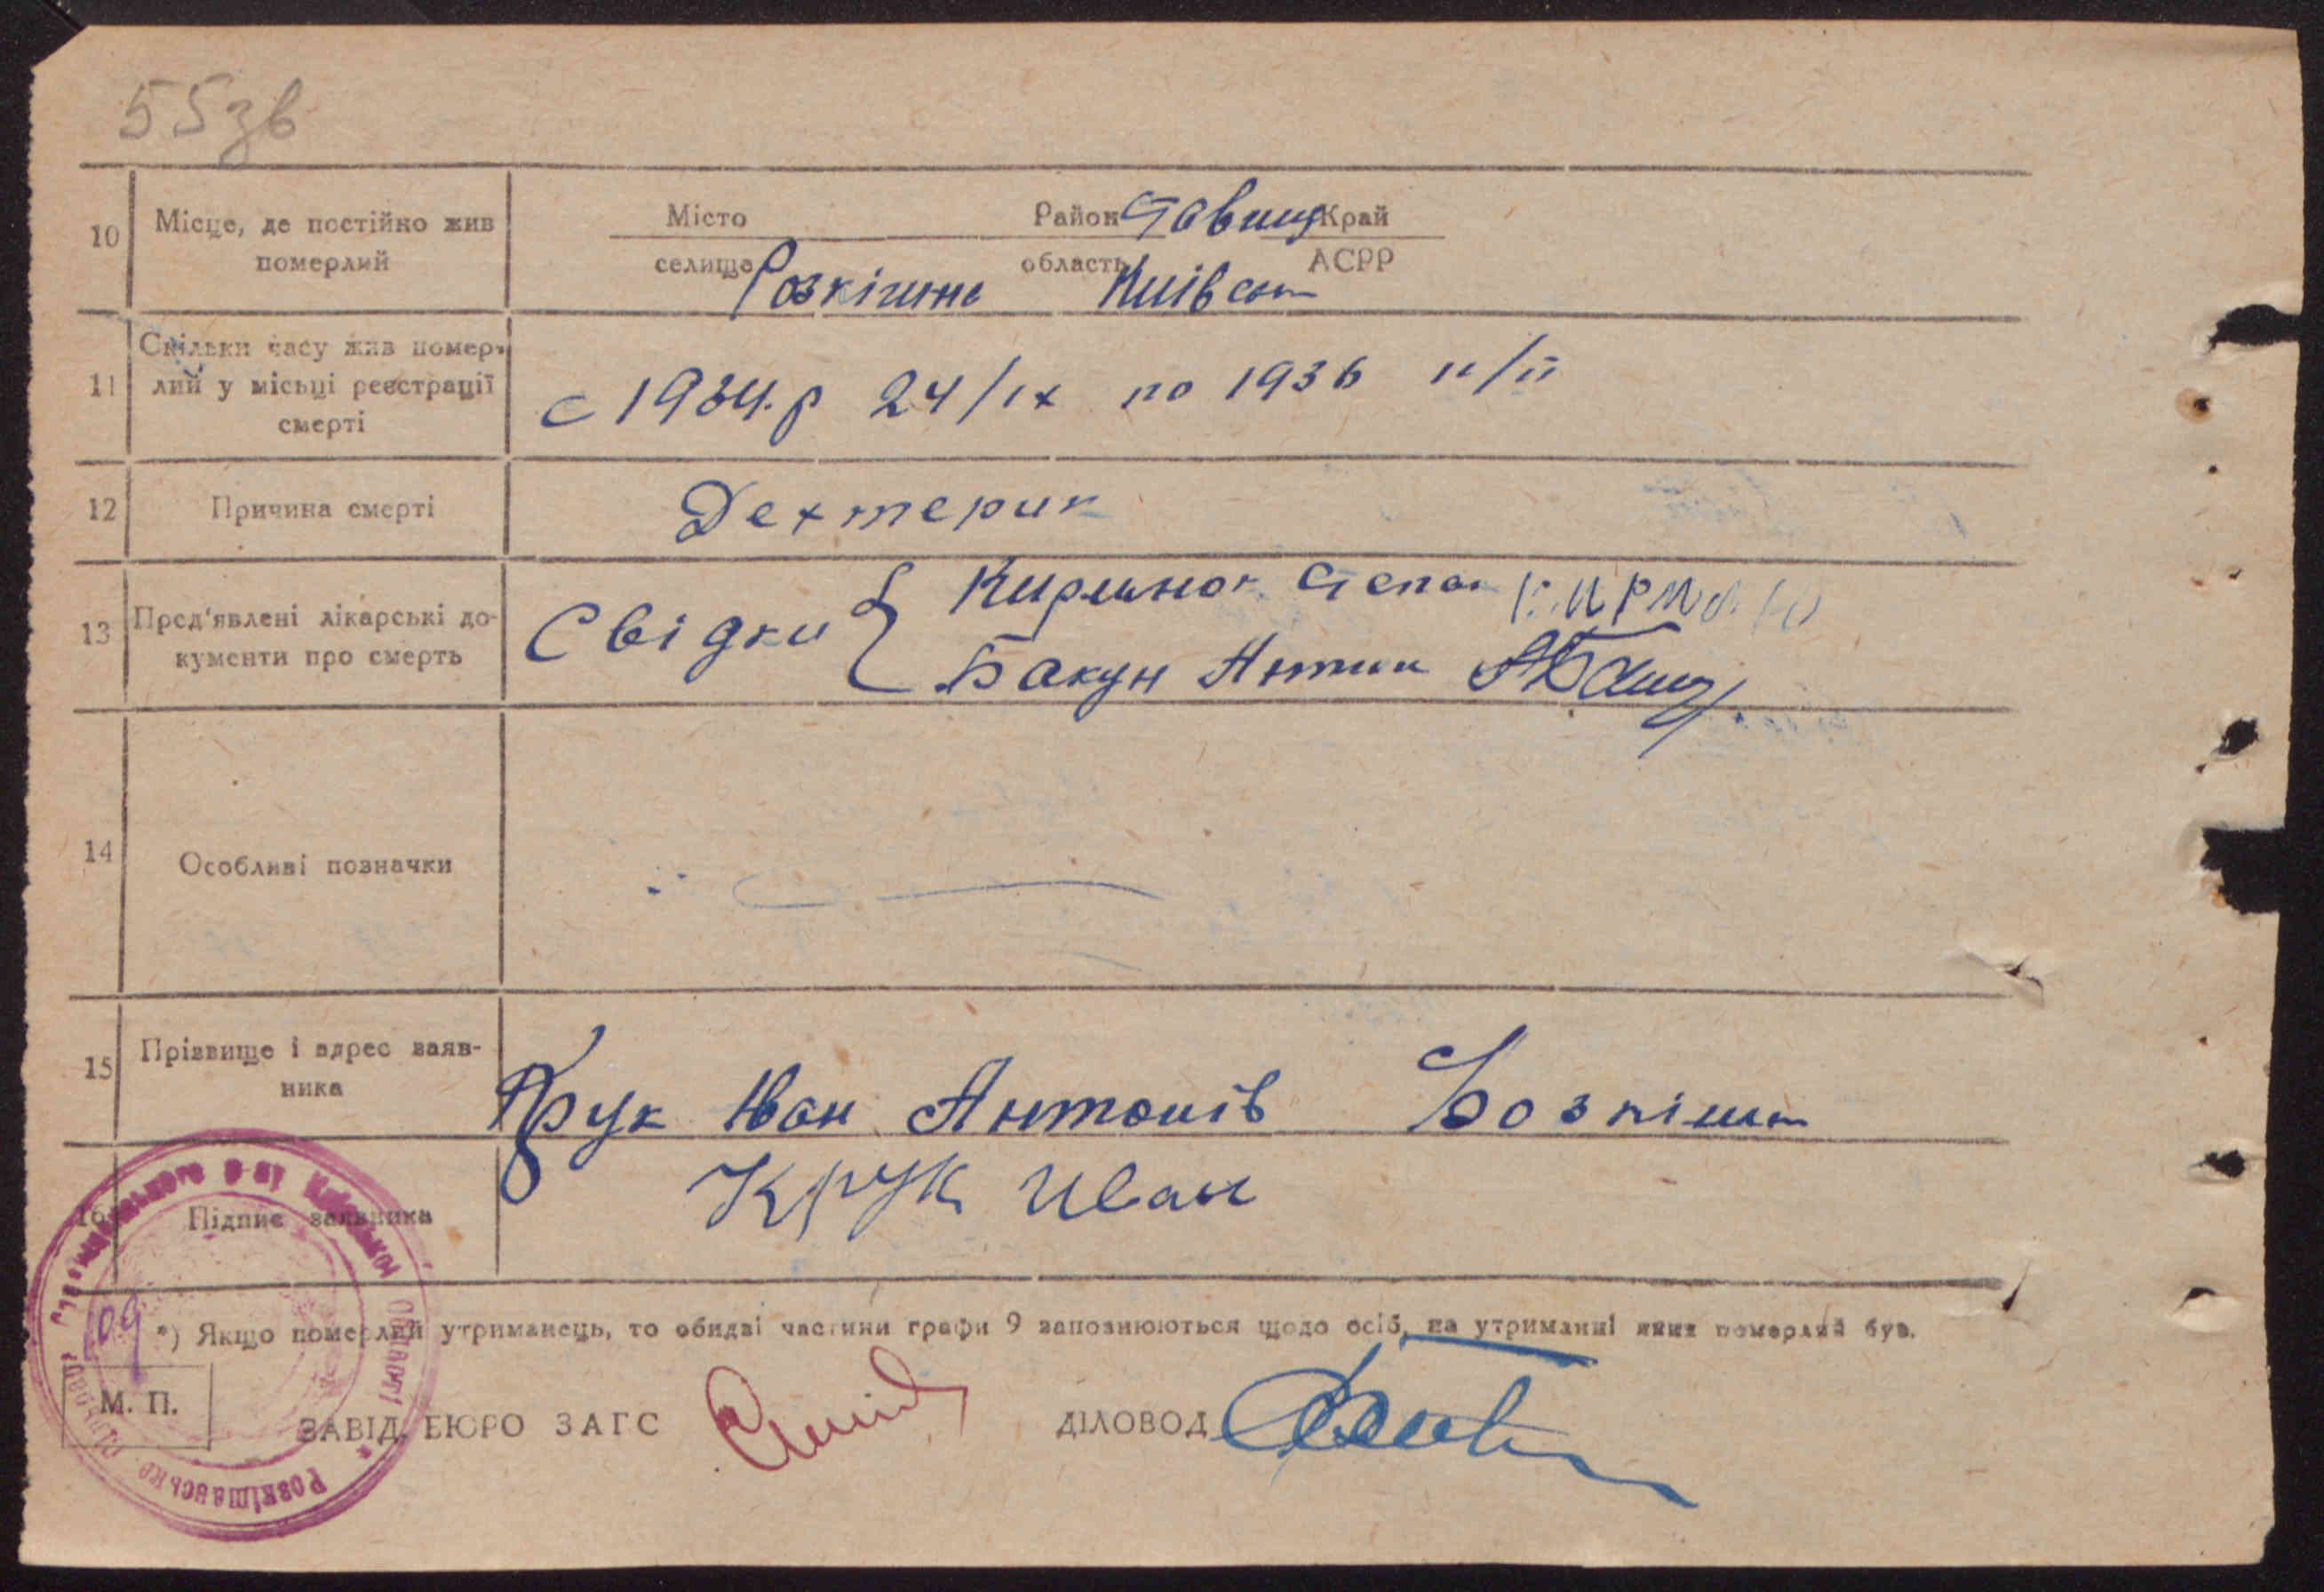 55зв
10 Місце, де постійно жив померлий
Місто Район Ставищ Край
селище Розкішне область Київськ АСРР
11 Скільки часу жив помер-
лий у місьці реєстрації
смерті
с 1934.р 24/IX по 1936 11/II
12 Причина смерті Дехтерик
13 Пред'явлені лікарські до-
кументи про смерть
Свідки { Степан
Бакун Антин
14 Особливі позначки
15 Прізвище і адрес заяв-
ника
Крук Іван Антонів Розкішна
16 Підпис заявника Крук Иван
*) Якщо померлий утриманець, то обидві частини графи 9 заповнюються щодо осіб, на утриманні яких померлий був.
М. П.
ЗАВІД. БЮРО ЗАГС ДІЛОВОД
Розкішанська